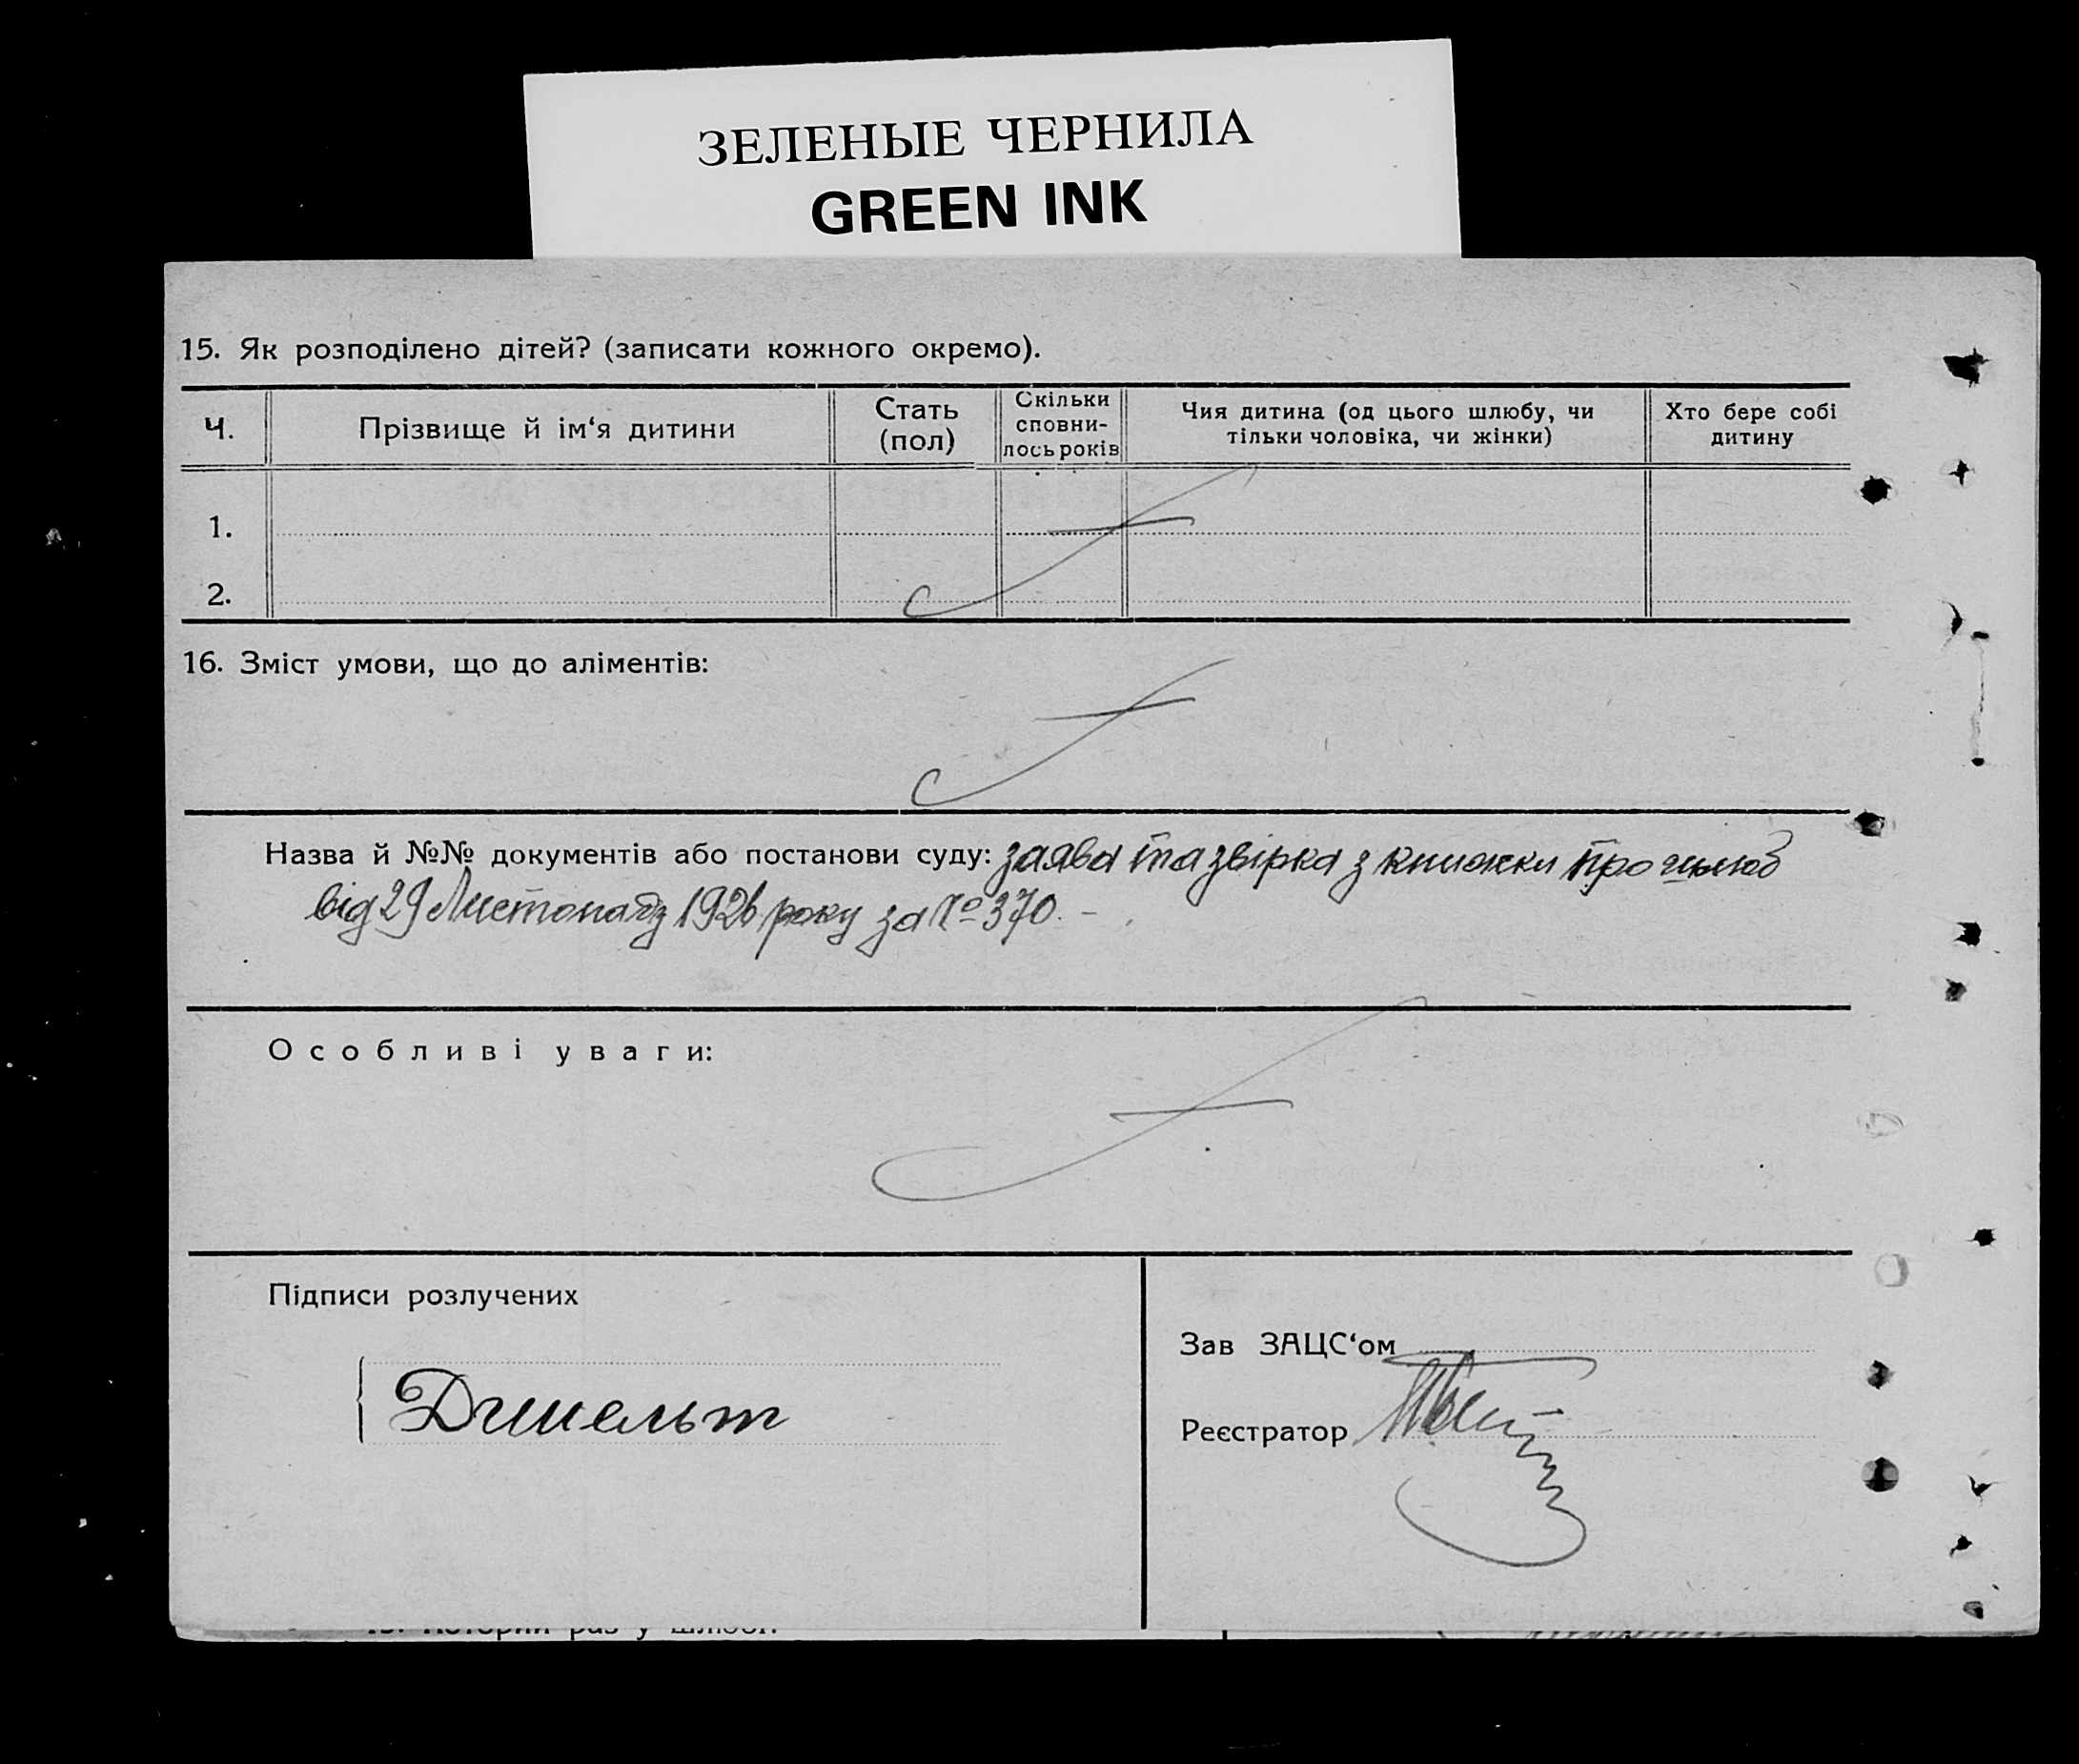 ЗЕЛЕНЫЕ ЧЕРНИЛА
GREEN INK
15. Як розподілено дітей? (записати кожного окремо).
Ч.
Прізвище й ім‘я дитини
Стать (пол)
Скільки сповни-лось років
Чия дитина (од цього шлюбу, чи тільки чоловіка, чи жінки)
Хто бере собі дитину
1.
2.
16. Зміст умови, що до аліментів:
Назва й №№ документів або постанови суду: заява та звірка з книжки про шлюб
від 29 Листопада 1926 року за № 370. –
Особливі уваги:
Підписи розлучених
Зав ЗАЦС‘ом
Реєстратор
13. Котрий раз у шлюбі: